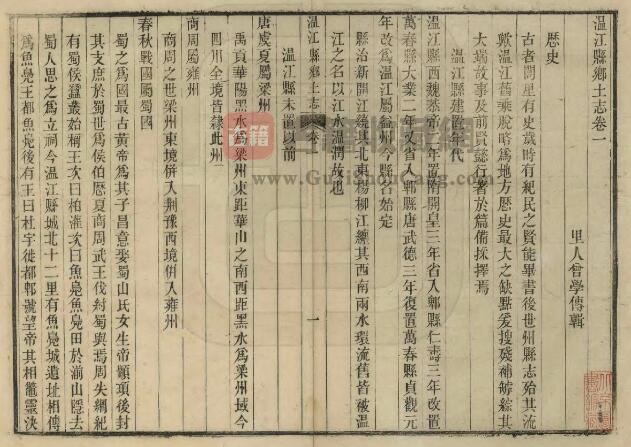 温江縣鄉土志卷一
里人曾學傳輯
歷史
古者閭里有史歲時有紀民之賢能畢書後世州縣志殆其流
歟温江舊乘脫略爲地方歷史最大之缺點爰搜殘補綜其
大端故事及前賢懿行著於篇備採擇焉
温江縣建置年代
温江縣西魏恭帝二年置隋開皇三年省入郫縣仁壽三年改置
萬春縣大業二年又省入郫縣唐武德三年復置萬春縣貞觀元
年改爲温江屬益州今縣名始定
縣治新開江繞其北東楊柳江纏其西南兩水環流舊皆被温
江之名以江水温潤故也
温江縣鄉土志 卷一 一
温江縣未置以前
唐虞夏屬梁州
禹貢華陽黑水爲梁州東距華山之南西距黑水爲梁州域今
四川全境皆隸此州
商周屬雍州
商周之世梁州東境併入荊豫西境併入雍州
春秋戰國屬蜀國
蜀之爲國最古黃帝爲其子昌意娶蜀山氏女生帝顓頊後封
其支庶於蜀世爲侯伯歷夏商周武王伐紂蜀與焉周失綱紀
有蜀侯蠶叢始稱王次曰柏灌次曰魚鳧魚鳧田於湔山隱去
蜀人思之爲立祠今温江縣城北十二里有魚鳧城遺址相傳
爲魚鳧王都魚鳧後有王曰杜宇徙都郫號望帝其相鼈靈決
www.GuJiShouCang.com